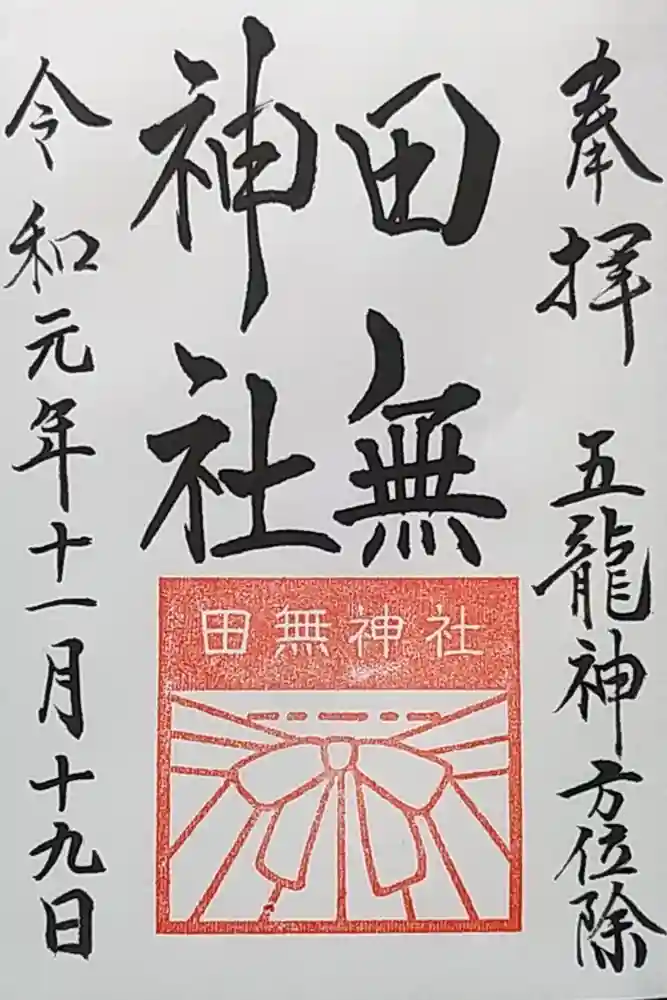 奉拝 五龍神方位除
田無
神社
田無神社
令和元年十一月十九日